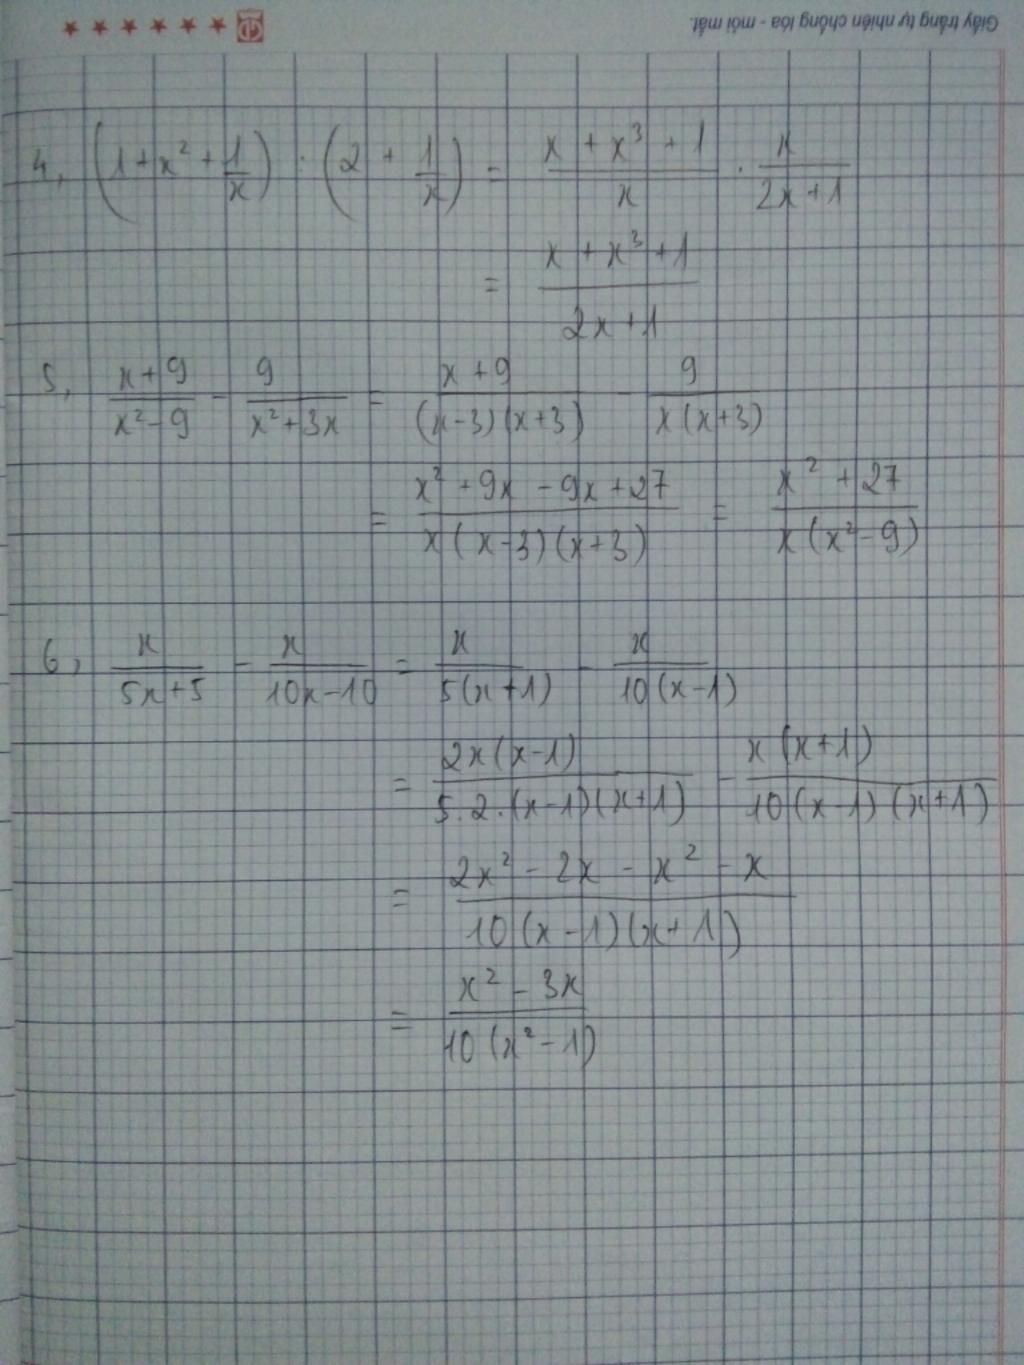 Giấy trắng tự nhiên chống lóa - mỏi mắt.
4, (1 + x² + 1/x) : (2 + 1/x) = (x + x³ + 1)/x · x/(2x + 1)
= (x + x³ + 1)/(2x + 1)
5, (x + 9)/(x² - 9) - 9/(x² + 3x) = (x + 9)/((x - 3)(x + 3)) - 9/(x(x + 3))
= (x² + 9x - 9x + 27)/(x(x - 3)(x + 3)) = (x² + 27)/(x(x² - 9))
6, x/(5x + 5) - x/(10x - 10) = x/(5(x + 1)) - x/(10(x - 1))
= 2x(x - 1)/(5.2.(x - 1)(x + 1)) - x(x + 1)/(10(x - 1)(x + 1))
= (2x² - 2x - x² - x)/(10(x - 1)(x + 1))
= (x² - 3x)/(10(x² - 1))